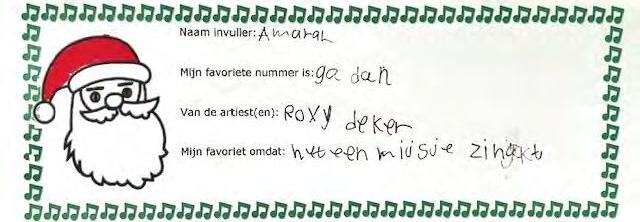 Naam invuller: Amaral
Mijn favoriete nummer is: ga dan
Van de artiest(en): Roxy deker
Mijn favoriet omdat: het een miusie zingkt